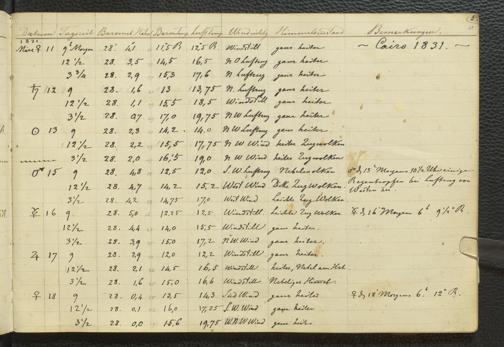 Datum Tageszeit Baromet. Windricht. Himmelszustand Bemerkungen
1831 ~ Cairo 1831. ~
März ♀ 11 9 Morgen 28. 4,1 11,5 R 12,5 R Windstill ganz heiter
12 1/2 28. 3,5 14,5 16,5 N O Luftzug ganz heiter
3 3/4 28. 2,9 15,3 17,6 N. Luftzug ganz heiter
♄ 12 9 28. 1,6 13 13,75 N. Luftzug ganz heiter
12 1/2 28. 1,1 15,5 18,5 Windstill ganz heiter
3 1/2 28. 0,7 17,0 19,75 N W Luftzug ganz heiter
☉ 13 9 28. 2,3 14,2 14,0 N W Luftzug ganz heiter
12 1/2 28. 2,2 15,5 17,75 N W Wind heiter Zugwolken
3 1/2 28. 2,0 16,5 19,0 N W Wind heiter Zugwolken
♂ 15 9 28. 4,8 12,5 12,0 S W Luftzug Nebelwolken
12 1/2 28. 4,7 14,2 15,2 West Wind Dicke Zug Wolken
Regentropfen bei Luftzug von
3 1/2 28. 4,2 14,75 17,0 West Wind Leichte Zug Wolken
Westen her
☿ 16 9 28. 5,0 12,25 12,5 Windstill Leichte Zug Wolken ☿ d. 16 Morgen 6 9 1/2 R.
12 1/2 28. 4,4 14,0 15,5 Windstill ganz heiter
3 1/2 28. 3,9 15,0 17,2 N W Wind ganz heiter
♃ 17 9 28. 2,9 12,0 12,2 Windstill ganz heiter
12 1/2 28. 2,1 14,5 16,5 Windstill heiter, Nebel am Hor.
3 1/2 28. 1,6 15,0 16,6 Windstill
♀ 18 9 28. 0,4 12,5 14,3 Süd Wind ganz heiter ♀ d. 18 Morgen 6 12 R.
12 1/2 28. 0,1 16,0 17,25 S. W. Wind ganz heiter
3 1/2 28. 0,0 15,6 19,75 W N W Wind ganz heiter